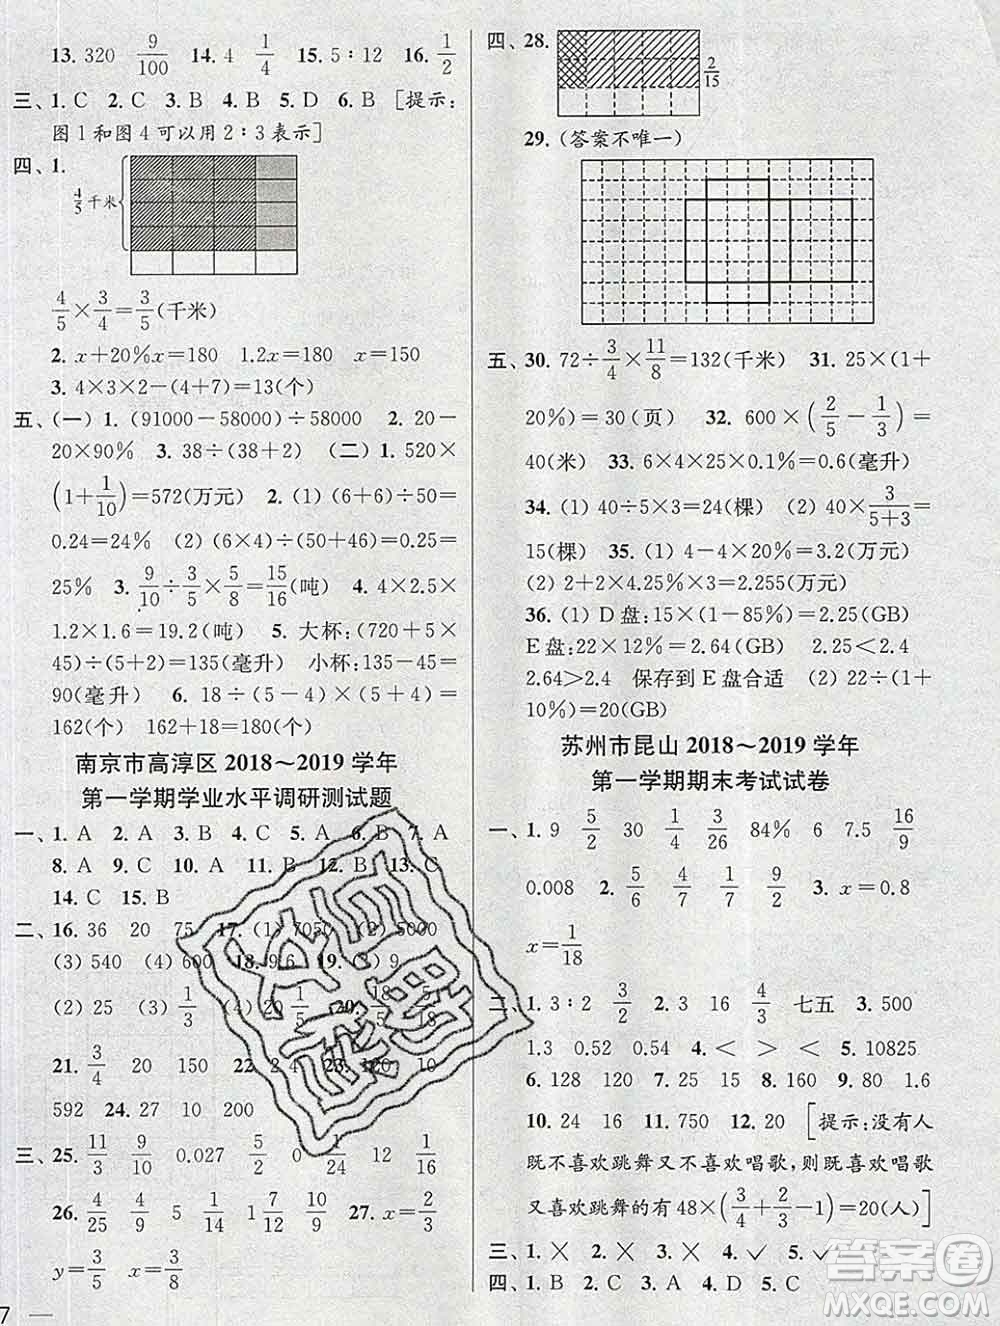 13. 320 9/100 14. 4 1/4 15. 5∶12 16. 1/2
三、1. C 2. C 3. B 4. B 5. D 6. B [提示:
图1和图4可以用2∶3表示]
四、1.
4/5千米
4/5×3/4=3/5(千米)
2. x+20%x=180 1.2x=180 x=150
3. 4×3×2-(4+7)=13(个)
五、(一) 1. (91000-58000)÷58000 2. 20-
20×90% 3. 38÷(38+2) (二) 1. 520×
(1+1/10)=572(万元) 2. (1) (6+6)÷50=
0.24=24% (2) (6×4)÷(50+46)=0.25=
25% 3. 9/10÷3/5×5/8=15/16(吨) 4. 4×2.5×
1.2×1.6=19.2(吨) 5. 大杯:(720+5×
45)÷(5+2)=135(毫升) 小杯:135-45=
90(毫升) 6. 18÷(5-4)×(5+4)=
162(个) 162+18=180(个)
南京市高淳区2018～2019学年
第一学期学业水平调研测试题
一、1. A 2. A 3. B 4. C 5. A 6. B 7. A
8. A 9. C 10. A 11. B 12. B 13. C
14. C 15. B
二、16. 36 20 75 17. (1) 7050 (2) 5000
(3) 540 (4) 600 18. 9.6 19. (1) 9
(2) 25 (3) 1/3 (4) 20 20. 18 5/18
21. 3/4 20 150 22. 24 23. 120
592 24. 27 10 200
三、25. 11/3 9/10 0.027 5/2 0 1/24 12 1/16
26. 4/25 4/9 5 1/14 1/12 9/10 27. x=2/3
y=3/5 x=3/8
7
四、28.
2/15
29. (答案不唯一)
五、30. 72÷3/4×11/8=132(千米) 31. 25×(1+
20%)=30(页) 32. 600×(2/5-1/3)=
40(米) 33. 6×4×25×0.1%=0.6(毫升)
34. (1) 40÷5×3=24(棵) (2) 40×3/(5+3)=
15(棵) 35. (1) 4-4×20%=3.2(万元)
(2) 2+2×4.25%×3=2.255(万元)
36. (1) D盘:15×(1-85%)=2.25(GB)
E盘:12×22%=2.64(GB) 2.25<2.4
2.64>2.4 保存到E盘合适 (2) 22÷(1+
10%)=20(GB)
苏州市昆山2018～2019学年
第一学期期末考试试卷
一、1. 9 5/2 30 1/4 3/26 84% 6 7.5 16/9
0.008 2. 5/6 4/7 1/7 9/2 3. x=0.8
x=1/18
二、1. 3∶2 3/2 2. 3 16 4/7 七五 3. 500
1.3 0.52 0.54 4. < > < 5. 10825
6. 128 120 7. 25 15 8. 150 9. 80 1.6
10. 24 16 11. 750 12. 20 [提示:没有人
既不喜欢跳舞又不喜欢唱歌,则既喜欢唱歌
又喜欢跳舞的有48×(3/4+2/3-1)=20(人)]
三、1. × 2. × 3. × 4. ✓ 5. ✓
四、1. B 2. C 3. A 4. D 5. C
答案圈
MXQE.COM